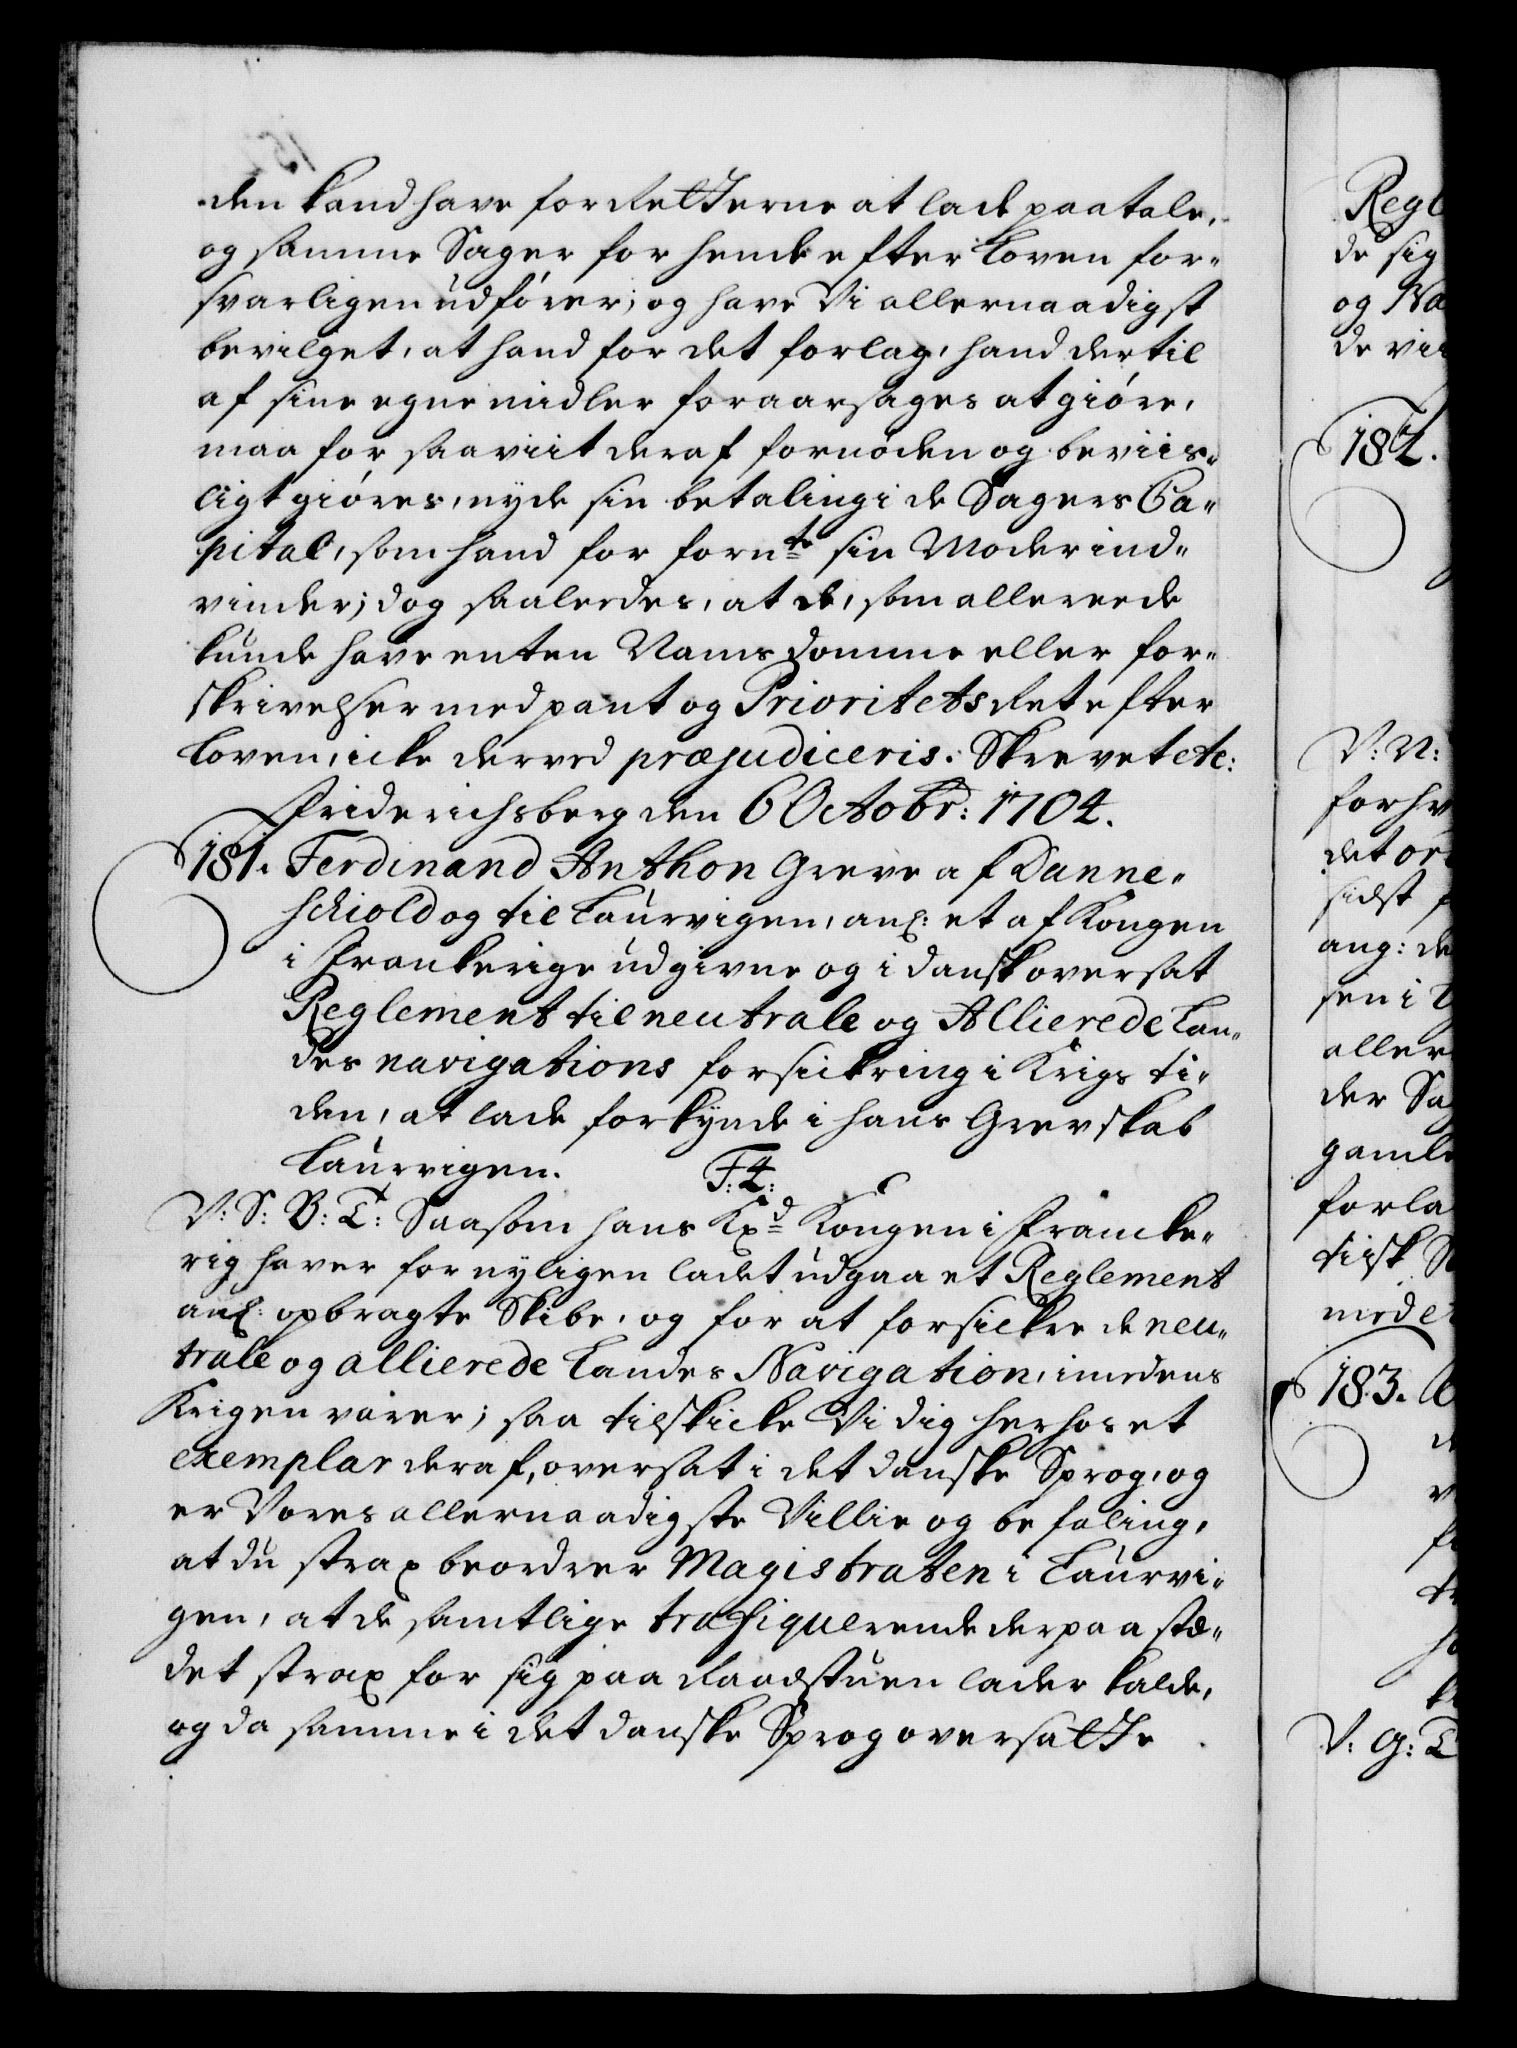 den kand have for Retterne at lade paatale,
og samme Sager for hende efter Loven for-
svarligen udfører; og have Vi allernaadigst
bevilget, at hand for det forlag, hand dertil
af sine egne midler foraarsages at giøre,
maa for saaviit deraf fornøden og beviis-
ligt giøres, nyde sin betaling i de Sagers Ca-
pital, som hand for fornte sin Moder ind-
vinder; dog saaledes, at de, som allereede
kunde have enten Nams domme eller for-
skrivelser med pant og Prioritets Ret efter
Loven, icke derved præjudiceris. Skrevet etc:
Friderichsberg den 6 Octobr: 1704.
181. Ferdinand Anthon Greve af Danne-
schiold og til Laurvigen, anl: et af Kongen
i Frankerige udgivne og i dansk oversat
Reglement til neutrale og Allierede Lan-
des navigations forsickring i Krigs ti-
den, at lade forkynde i hans Grevskab
Laurvigen. F: 4:
V: S: B: T: Saasom hans Kxd Kongen i Francke-
rig haver for nyligen ladet udgaa et Reglement
anl: opbragte Skibe, og for at forsickre de neu-
trale og allierede Landes Navigation, imedens
Krigen varer; saa tilskicke Vi dig herhos et
exemplar deraf, oversat i det danske Sprog, og
er Vores allernaadigste Villie og befaling,
at du strax beordrer Magistraten i Laurvi-
gen, at de samtlige trafiquerende der paa stæ-
det strax for sig paa Raadstuen lader kalde,
og da samme i det danske Sprog oversatte
Regl
de sig
og Na
de vir
182.
V: N:
forhv
det or
sidst
ang: de
sen i
aller
der Sa
gamle
forla
tilsk
med et
183.
V: G: T